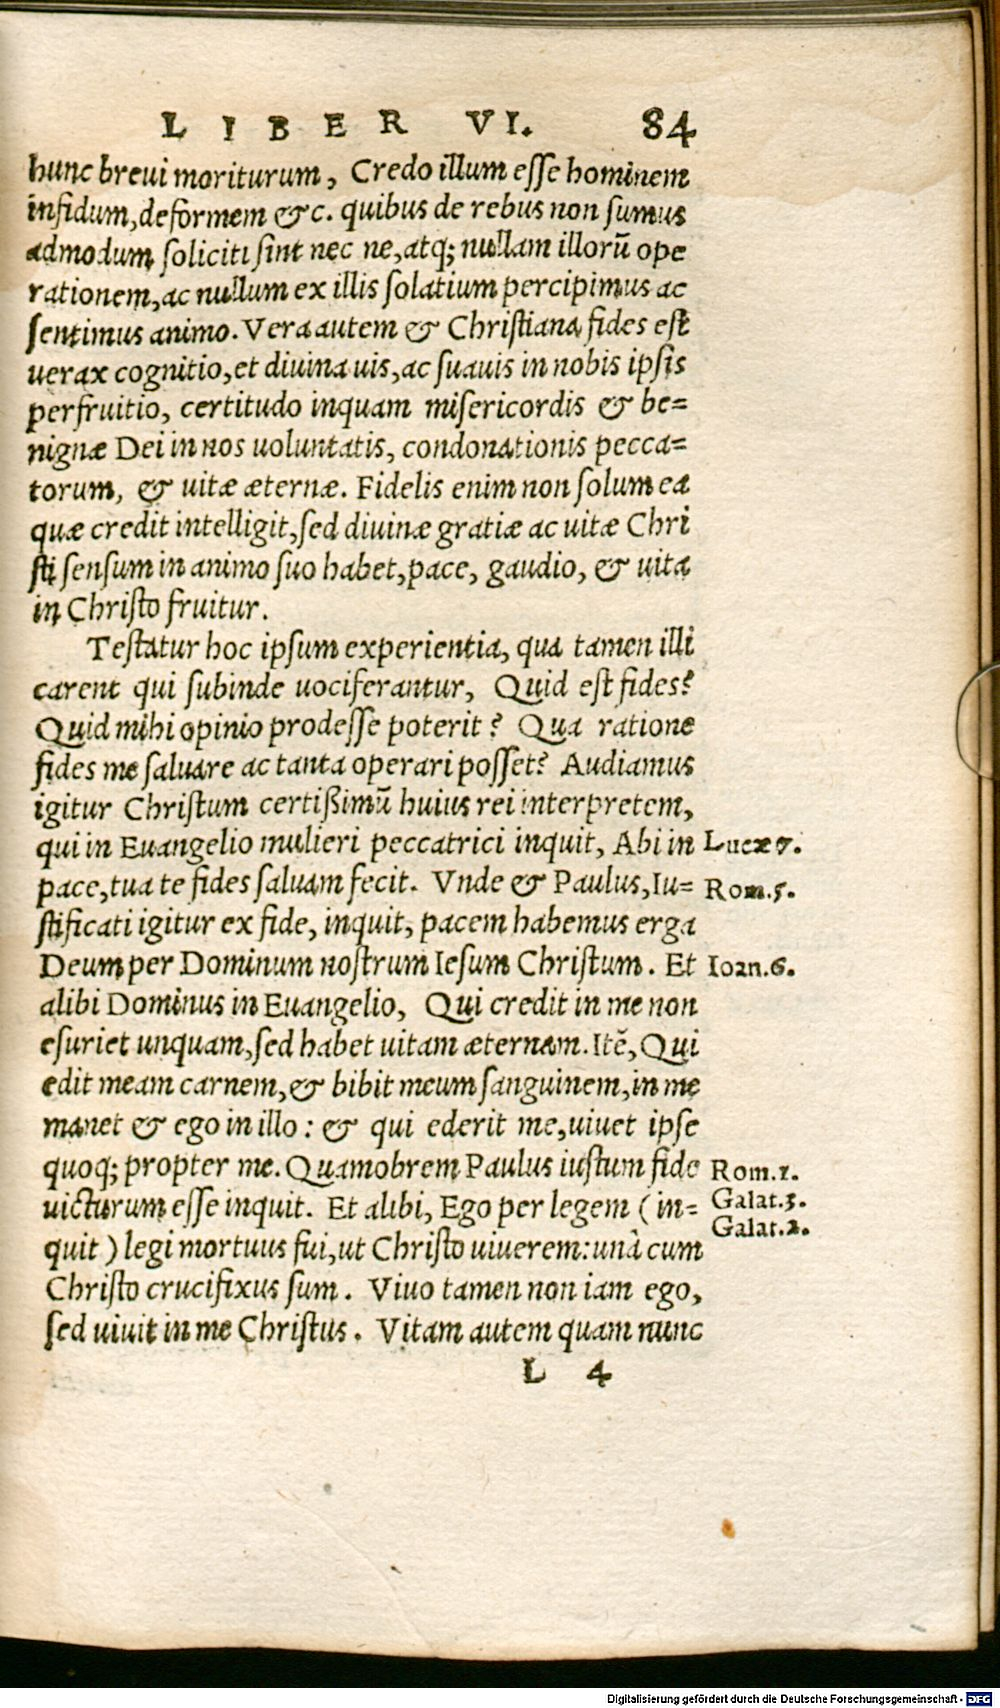 LIBER VI. 84
hunc breui moriturum, Credo illum esse hominem
infidum, deformem &c. quibus de rebus non sumus
admodum soliciti sint nec ne, atq; nullam illorū ope
rationem, ac nullum ex illis solatium percipimus ac
sentimus animo. Vera autem & Christiana fides est
uerax cognitio, et diuina uis, ac suauis in nobis ipsis
perfruitio, certitudo inquam misericordis & be=
nignæ Dei in nos uoluntatis, condonationis pecca=
torum, & uitæ æternæ. Fidelis enim non solum ea
quæ credit intelligit, sed diuinæ gratiæ ac uitæ Chri
sti sensum in animo suo habet, pace, gaudio, & uita
in Christo fruitur.
Testatur hoc ipsum experientia, qua tamen illi
carent qui subinde uociferantur, Quid est fides?
Quid mihi opinio prodesse poterit? Qua ratione
fides me saluare ac tanta operari posset? Audiamus
igitur Christum certißimū huius rei interpretem,
qui in Euangelio mulieri peccatrici inquit, Abi in Lucæ 7.
pace, tua te fides saluam fecit. Vnde & Paulus, Iu= Rom.5.
stificati igitur ex fide, inquit, pacem habemus erga
Deum per Dominum nostrum Iesum Christum. Et Ioan.6.
alibi Dominus in Euangelio, Qui credit in me non
esuriet unquam, sed habet uitam æternam. Itē, Qui
edit meam carnem, & bibit meum sanguinem, in me
manet & ego in illo: & qui ederit me, uiuet ipse
quoq; propter me. Quamobrem Paulus iustum fide Rom.1.
uicturum esse inquit. Et alibi, Ego per legem (in= Galat.3.
Galat.2.
quit) legi mortuus fui, ut Christo uiuerem: unà cum
Christo crucifixus sum. Viuo tamen non iam ego,
sed uiuit in me Christus. Vitam autem quam nunc
L 4
Digitalisierung gefördert durch die Deutsche Forschungsgemeinschaft - DFG